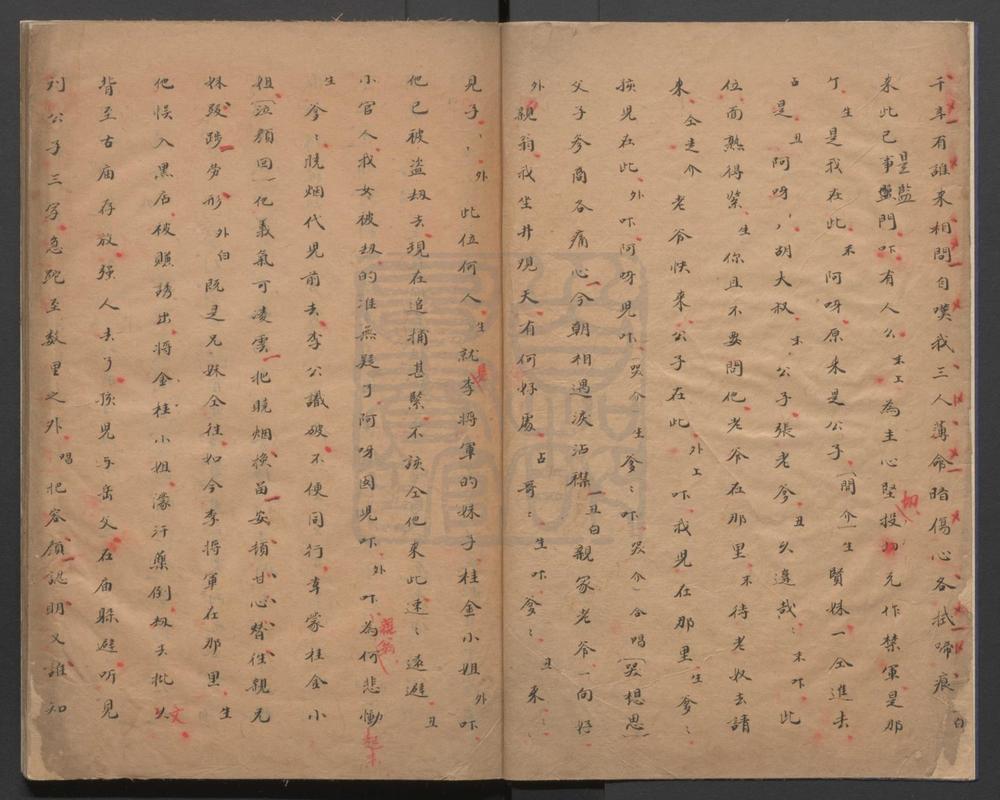 千辛有誰來相問自嘆我三人薄命暗傷心各拭啼痕 白
來此已是監門吓有人么 末上 為主心堅投 充作禁軍是那
丁 生 是我在此 末 阿呀原來是公子 問介 生 賢妹一仝進去
占 是 丑 阿呀，胡大叔 末 公子張老爹 丑 么邉哉 末 吓此
位面熟得緊 生 你且不要問他老爷在那里 末 待老奴去請
來 仝走介 老爷快來公子在此 外上 吓我兒在那里 生 爹
孩兒在此 外 吓阿呀兒吓 哭介 生 爹吓 哭介 合唱 哭想思
父子參商各痛心今朝相遇淚沾襟 丑白 親家老爷一向好
外 親翁我坐井現天有何好處 占 哥 生 吓爹 丑 來
見子 外 此位何人 生 就是李將軍的妹子桂金小姐 外 吓
他已被盜刼去現在追捕甚緊不該仝他來此速遠避 丑
小官人我女被刼的准無疑了阿呀囡兒吓 外 吓親翁為何悲慟起來
生 爹曉烟代兒前去李公識破不便同行幸蒙桂金小
姐 泣顏回 仡義氣可凌雲把曉烟換面安頓甘心替徃親兄
妹跋踄勞形 外白 既是兄妹仝徃如今李將軍在那里 生
他悞入黑店被賺誘出將金桂小姐濛汗藥倒刼去批文
背至古庙存放强人去了孩兒与岳父在庙躲避听見
刘公子三字急跎至数里之外 唱 把容顏認明又誰知